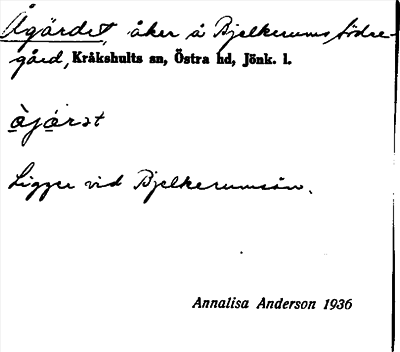 Ågärdet, åker å Bjelkerums södre-
gård, Kråkshults sn, Östra hd, Jönk. l.
å̀jǻrət
Ligger vid Bjelkerumsån.
Annalisa Anderson 1936